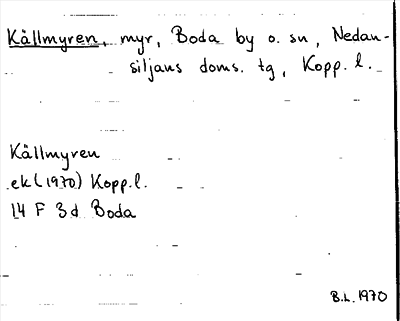 Kållmyren, myr, Boda by o. sn, Nedan-
siljans doms. tg, Kopp. l.
Kållmyren
ek (1970) Kopp. l.
14 F 3d Boda
B.L. 1970